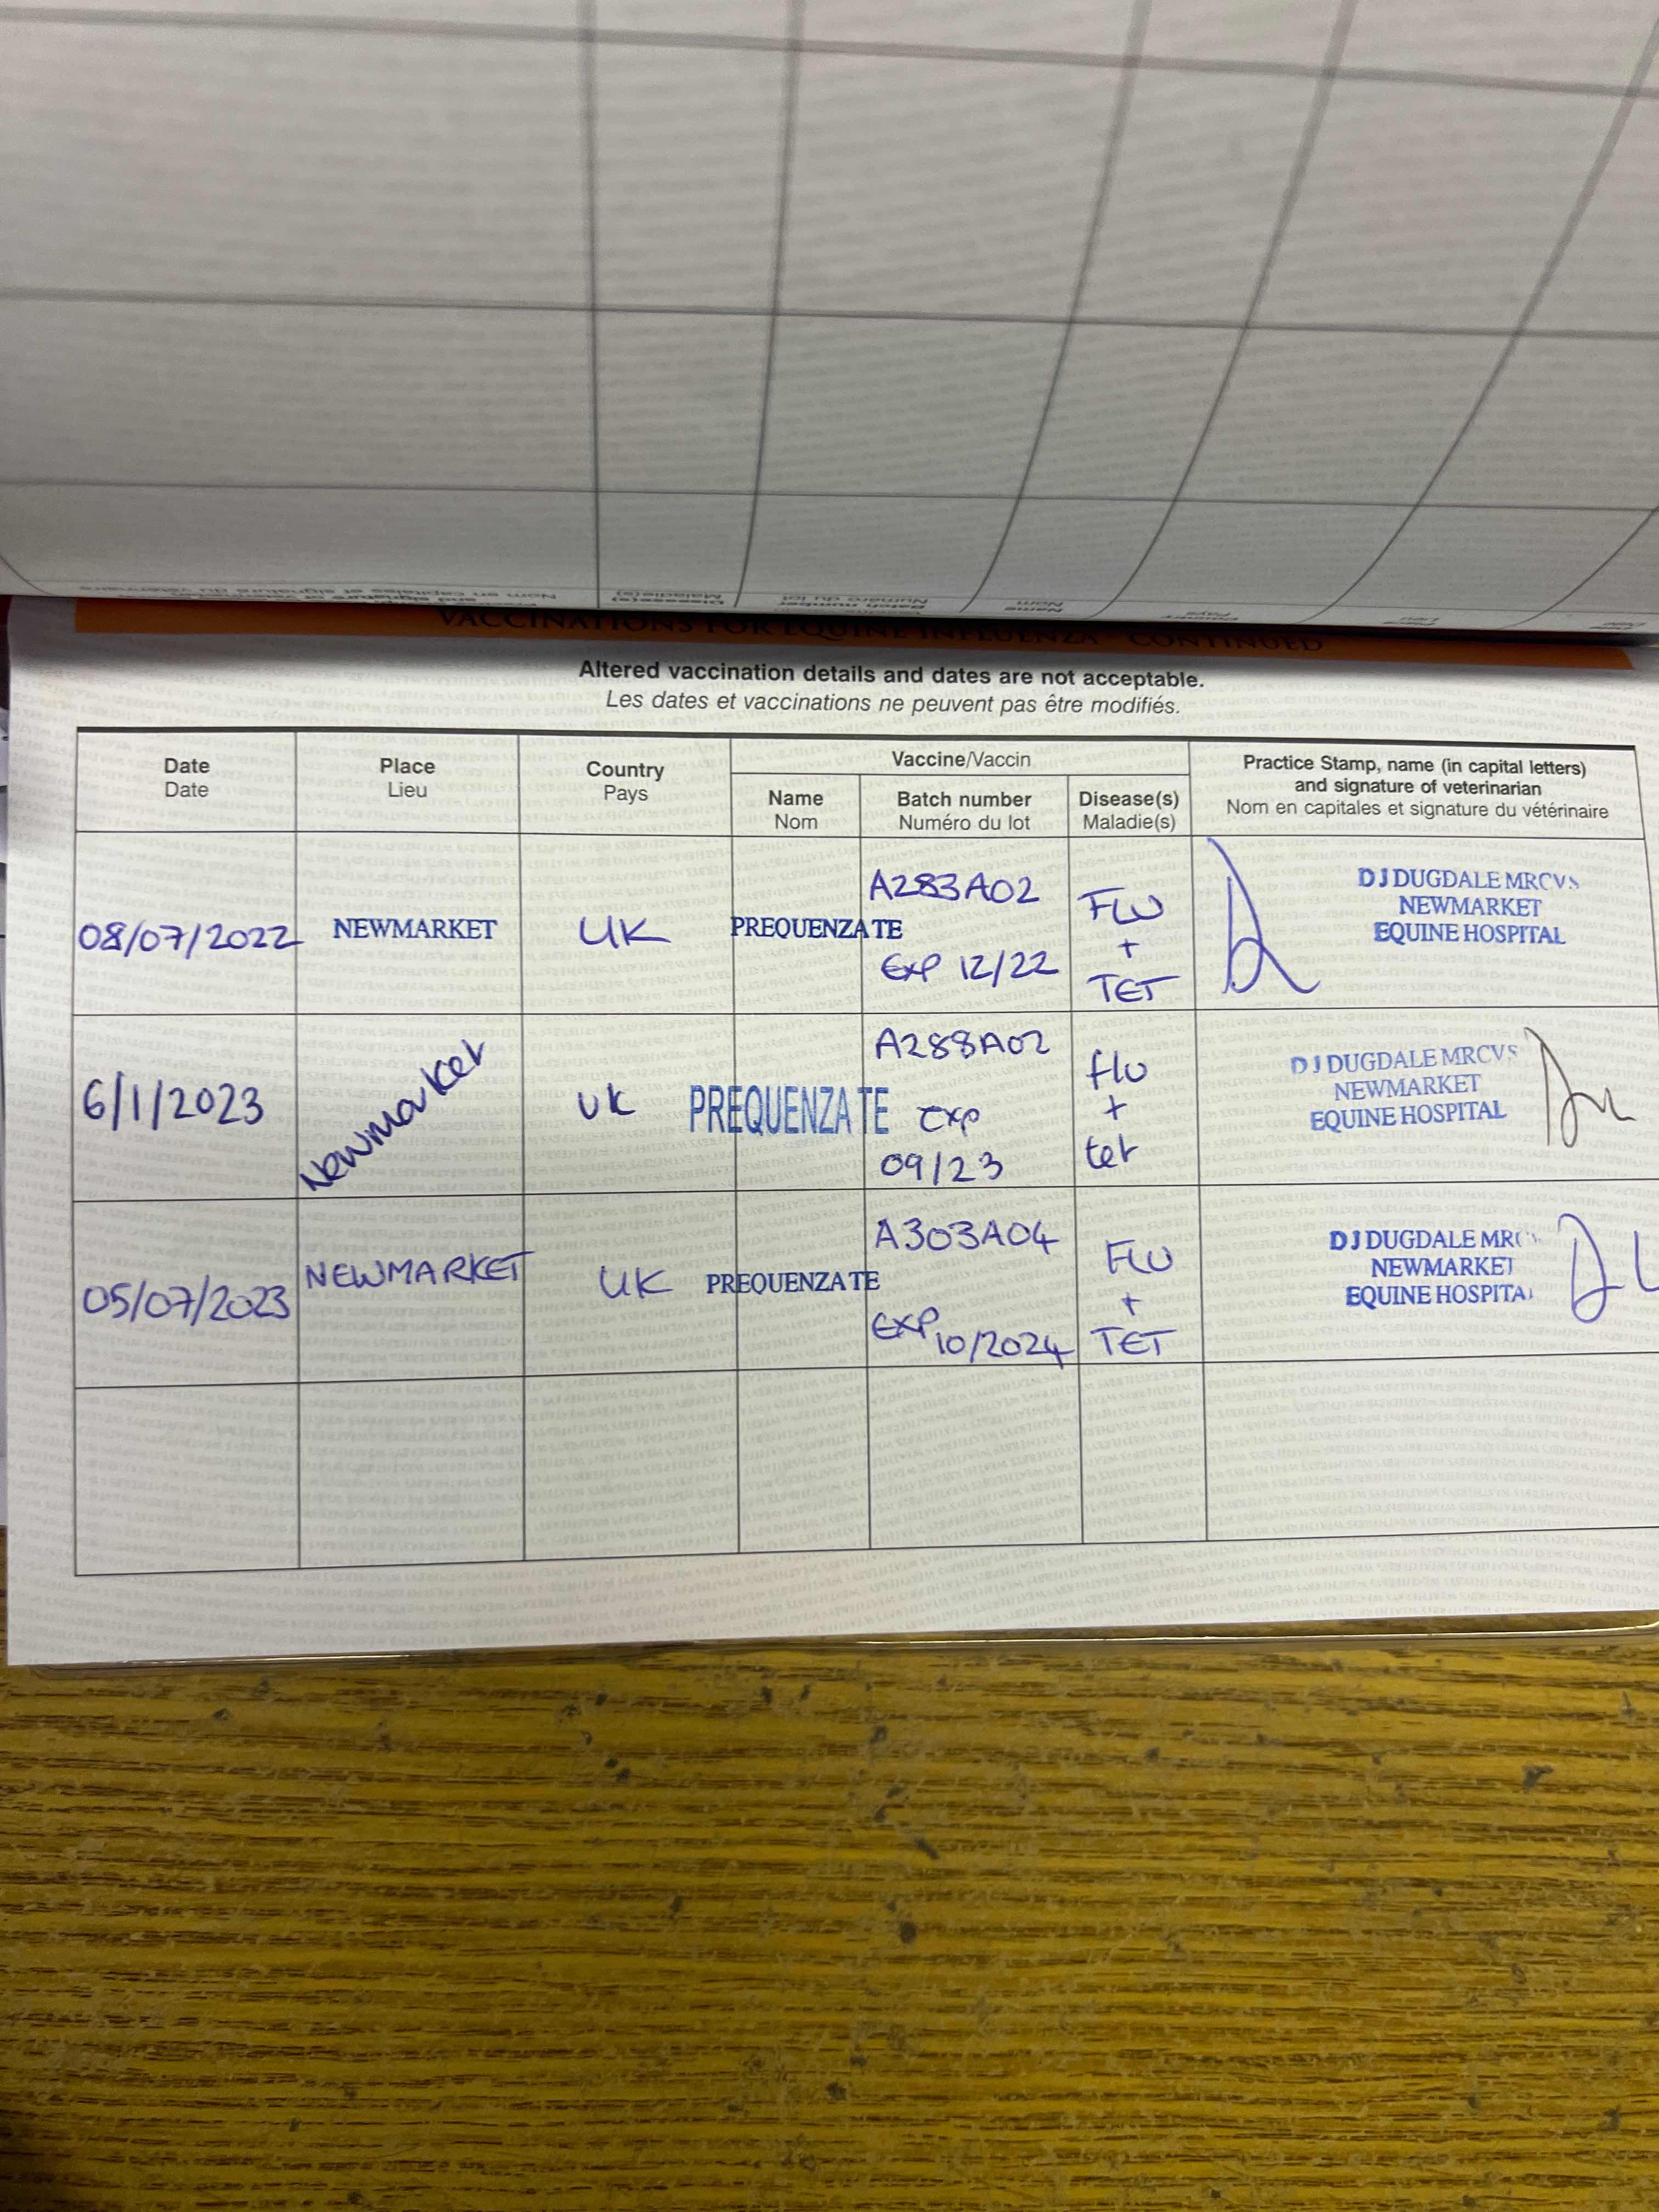 VACCINATIONS FOR EQUINE INFLUENZA CONTINUED
Altered vaccination details and dates are not acceptable.
Les dates et vaccinations ne peuvent pas être modifiés.
Date
Date
Place
Lieu
Country
Pays
Vaccine/Vaccin
Name
Nom
Batch number
Numéro du lot
Disease(s)
Maladie(s)
Practice Stamp, name (in capital letters)
and signature of veterinarian
Nom en capitales et signature du vétérinaire
08/07/2022
NEWMARKET
UK
PREQUENZA TE
A283A02
EXP 12/22
FLU
+
TET
DJ DUGDALE MRCVS
NEWMARKET
EQUINE HOSPITAL
6/1/2023
Newmarket
UK
PREQUENZA TE
A288A02
exp
09/23
flu
+
tet
DJ DUGDALE MRCVS
NEWMARKET
EQUINE HOSPITAL
05/07/2023
NEWMARKET
UK
PREQUENZA TE
A303A04
EXP
10/2024
FLU
+
TET
DJ DUGDALE MRC
NEWMARKET
EQUINE HOSPITAL